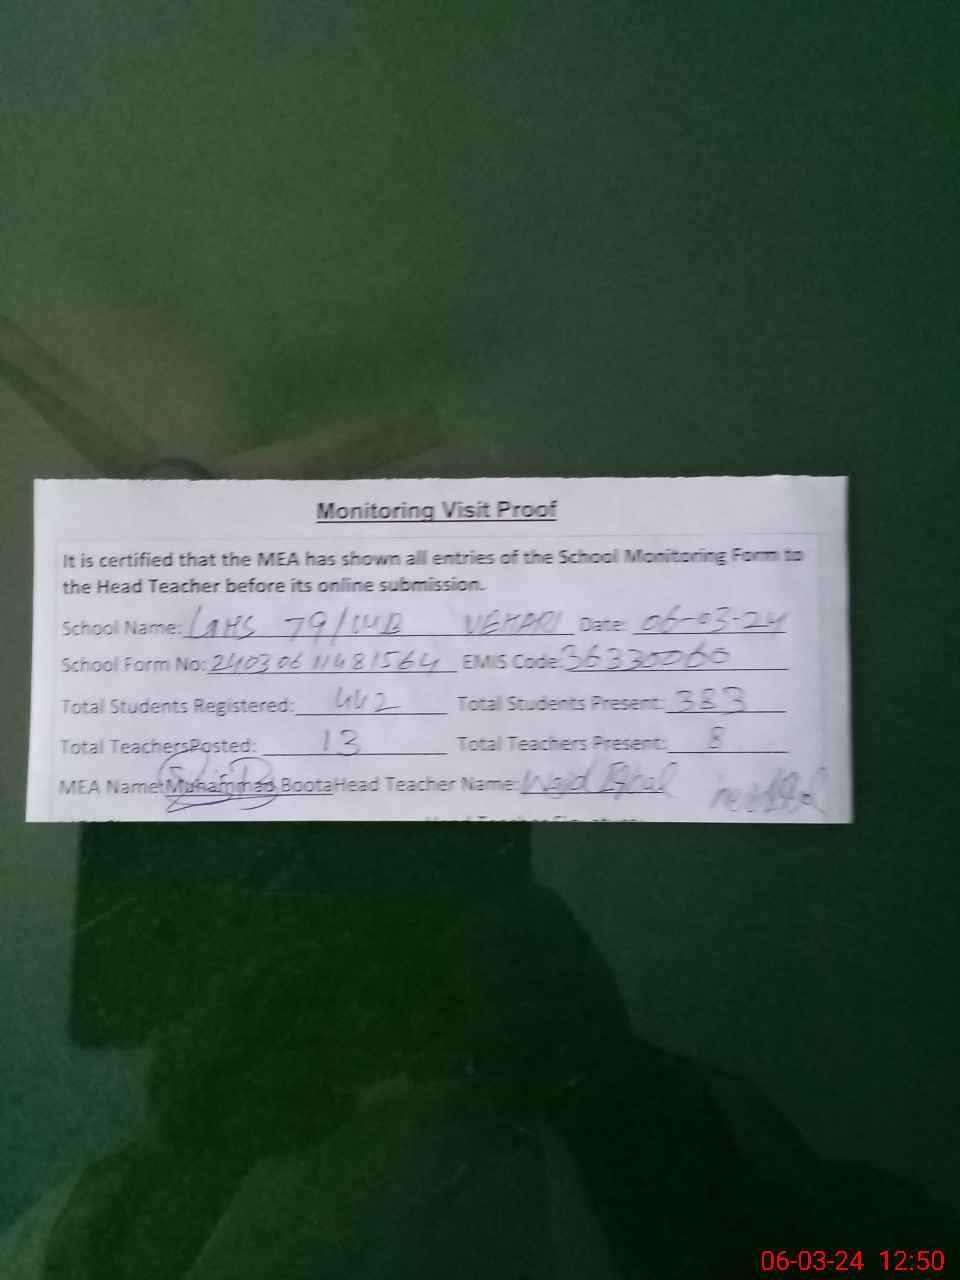 Monitoring Visit Proof
It is certified that the MEA has shown all entries of the School Monitoring Form to
the Head Teacher before its online submission.
School Name: GHS 79/WB VEHARI Date: 06-03-24
School Form No: 24030611481564 EMIS Code: 36330060
Total Students Registered: 442 Total Students Present: 383
Total TeachersPosted: 13 Total Teachers Present: 8
MEA Name: Muhammad Boota Head Teacher Name: Wajid Iqbal
06-03-24 12:50